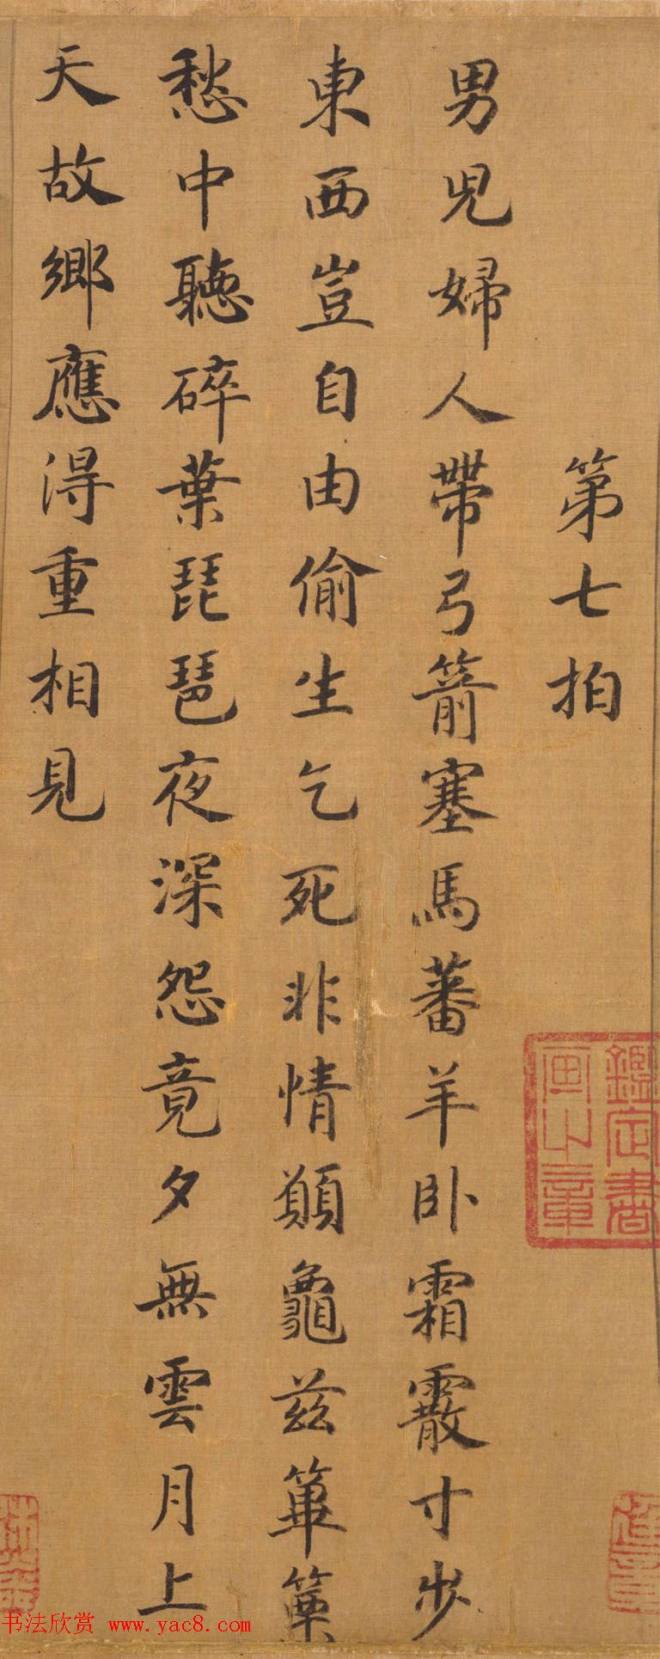 第七拍
男兒婦人帶弓箭塞馬蕃羊卧霜霰寸步
東西豈自由偷生乞死非情願龜兹篳篥
愁中聽碎葉琵琶夜深怨竟夕無雲月上
天故鄉應得重相見
鑑定書畫之章
书法欣赏 www.yac8.com